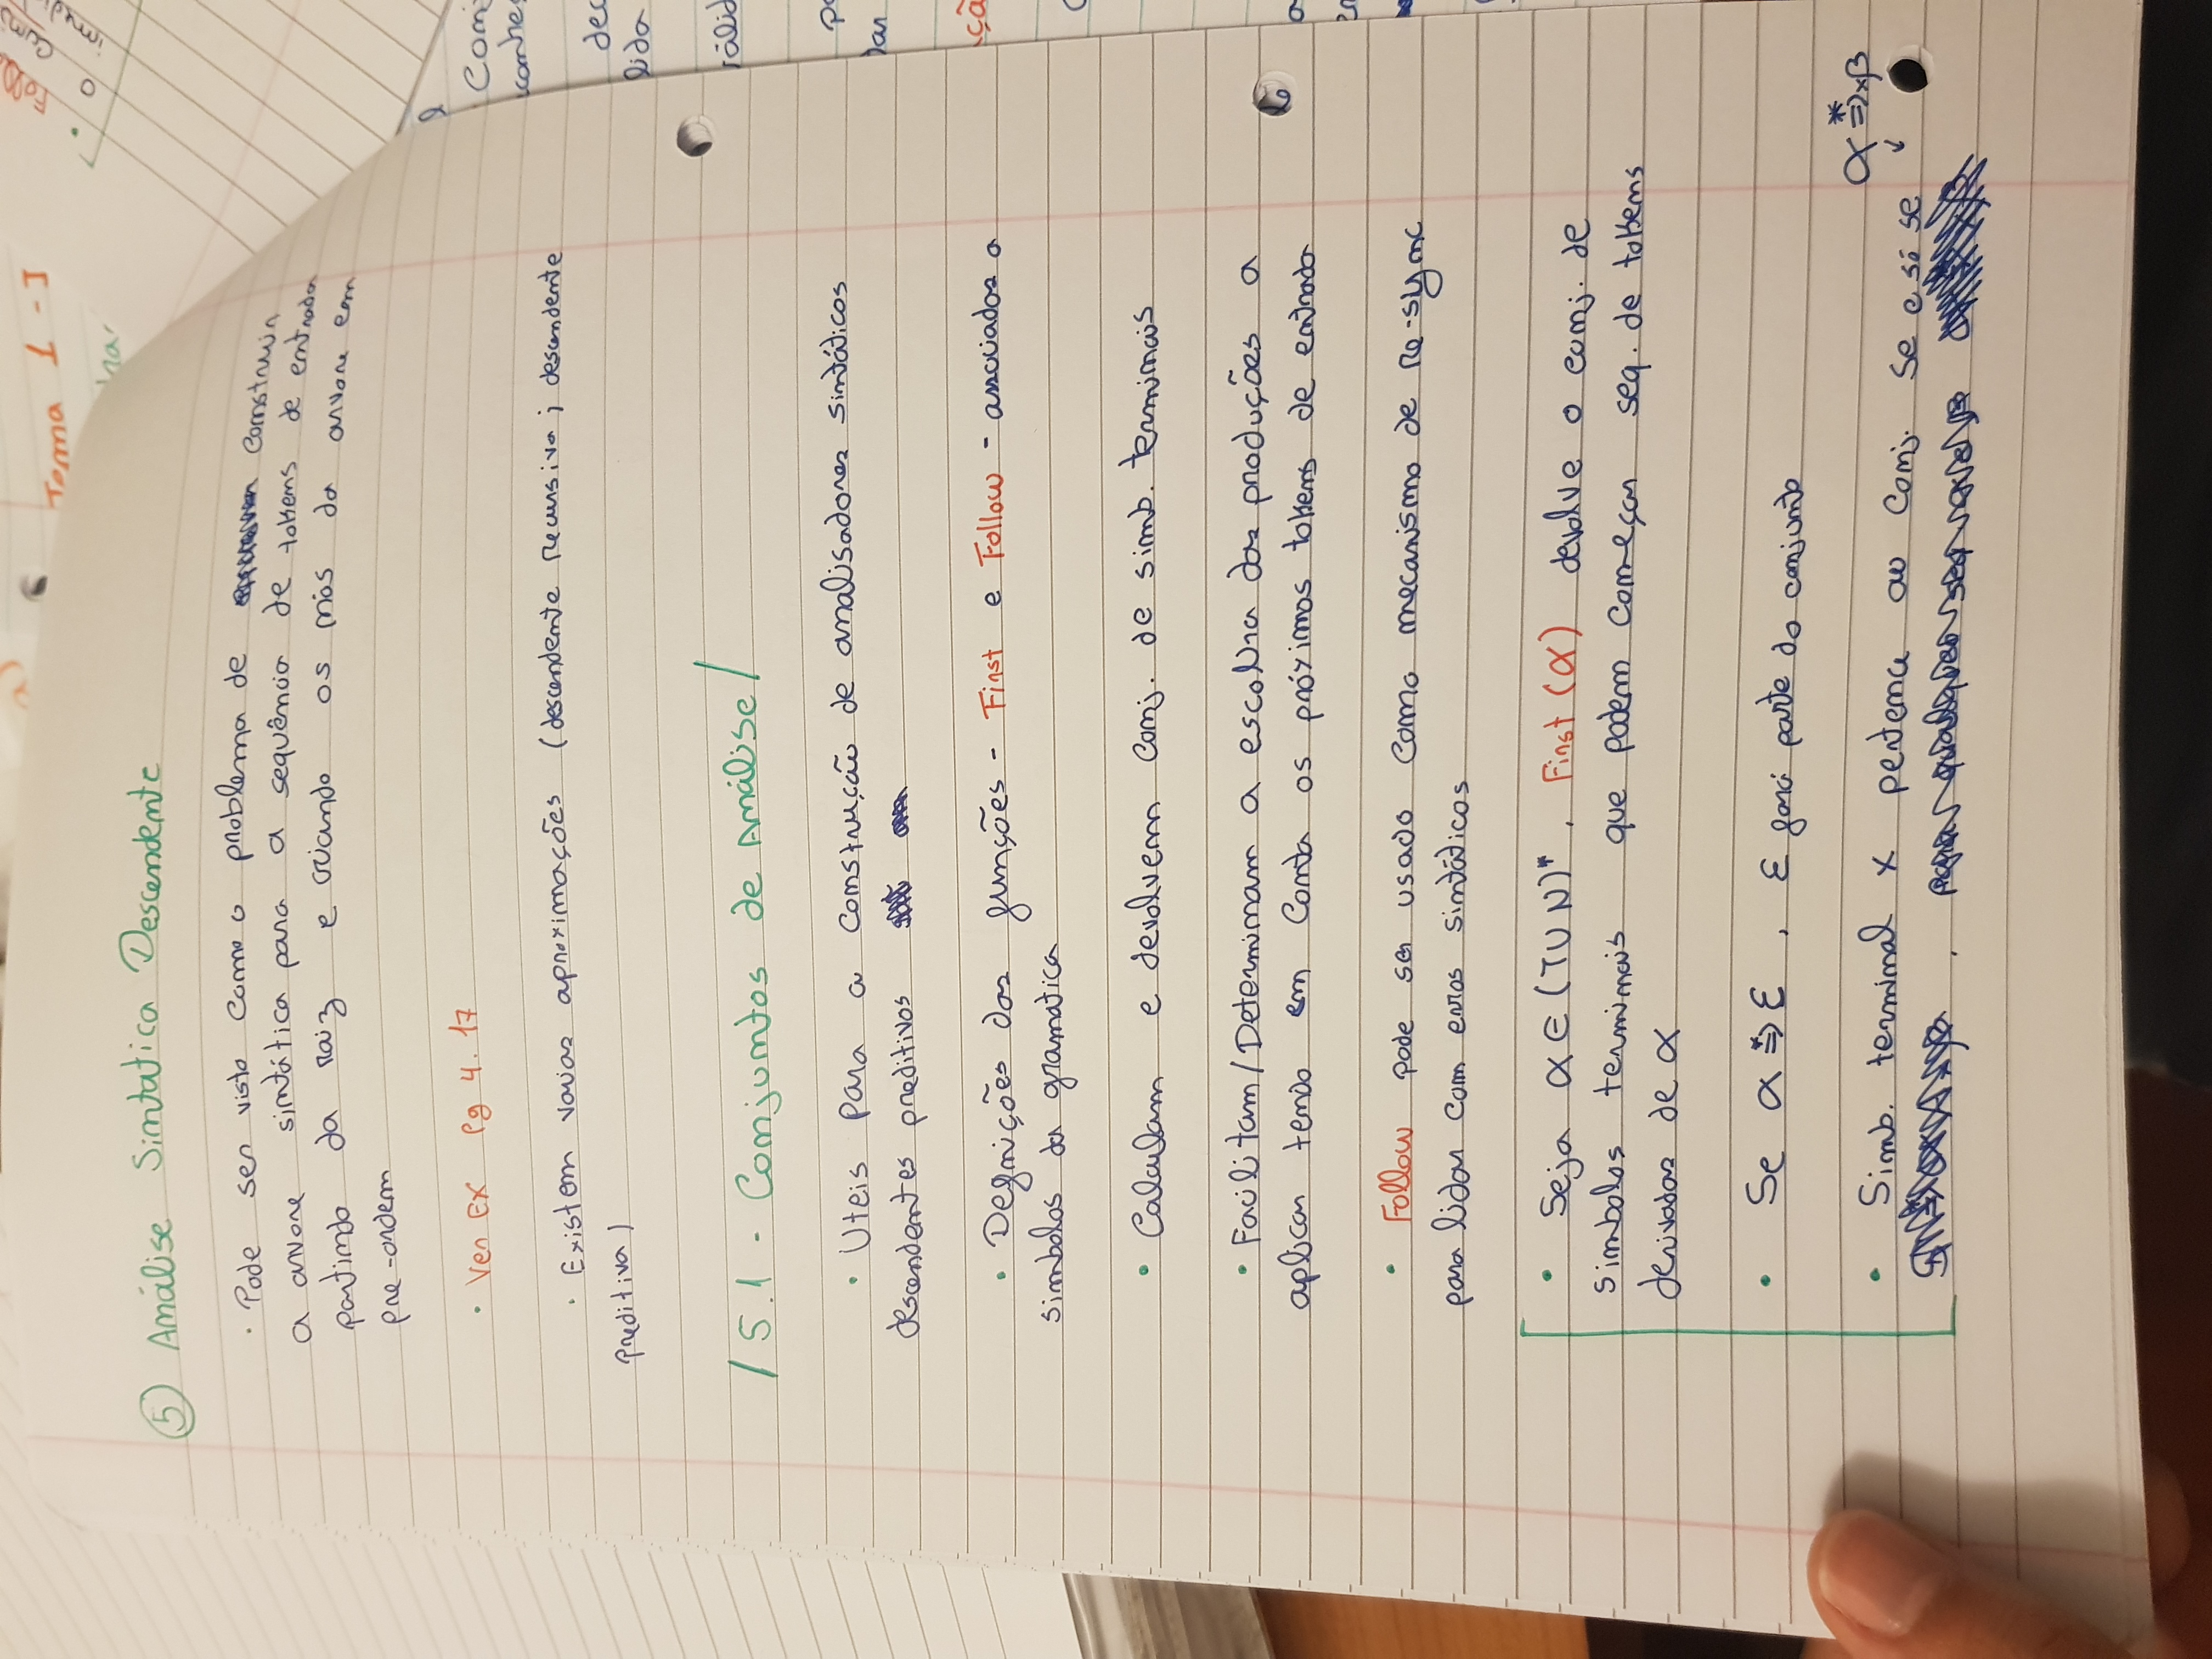 ⑤ Análise Sintatica Descendente
· Pode ser visto como o problema de construir
a arvore sintática para a sequência de tokens de entrada
partindo da raiz e criando os nós da arvore em
pre-ordem
· Ver Ex Pg 4.17
· Existem varias aproximações (descendente recursiva; descendente
preditiva)
/ 5.1 - Conjuntos de Análise /
· Uteis para a construção de analisadores sintáticos
descendentes preditivos
· Definições das funções - First e Follow - associadas a
simbolos da gramatica
· Calculam e devolvem conj. de simb. terminais
· Facilitam/Determinam a escolha das produções a
aplicar tendo em conta os próximos tokens de entrada
· Follow pode ser usado como mecanismo de re-sync
para lidar com erros sintáticos
· Seja α ∈ (T U N)*, First (α) devolve o conj. de
simbolos terminais que podem começar seq. de tokens
derivadas de α
· Se α *⇒ ε, ε fará parte do conjunto
α *⇒ xβ
· Simb. terminal x pertence ao conj. se e só se
Toma 1 - I